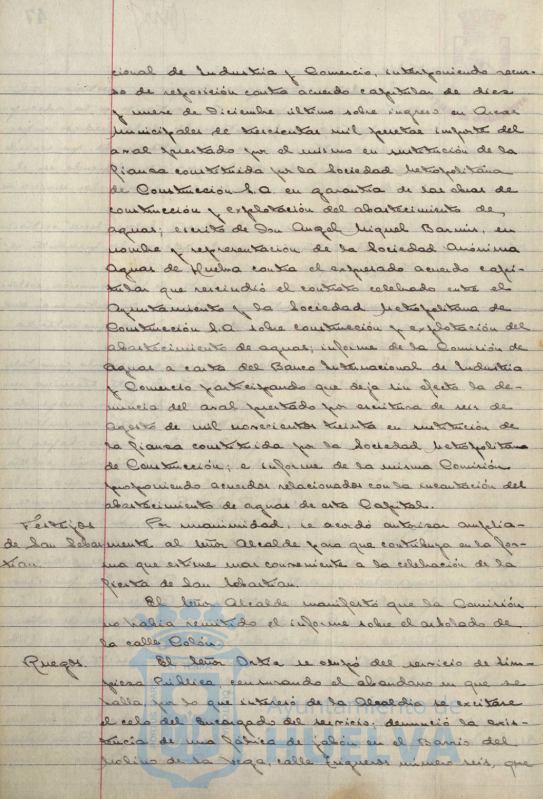 cional de Industria y Comercio, interponiendo recur-
so de reposición contra acuerdo capitular de diez
y nueve de Diciembre último sobre ingreso en Arcas
Municipales de trescientas mil pesetas importe del
aval prestado por el mismo en sustitución de la
fianza constituida por la Sociedad Metropolitana
de Construcción S.A en garantía de las obras de
construcción y explotación del abastecimiento de
aguas; escrito de Don Angel Miguel en
nombre y representación de la Sociedad Anónima
Aguas de Huelva contra el expresado acuerdo capi-
tular que rescindió el contrato celebrado entre el
Ayuntamiento y la Sociedad Metropolitana de
Construcción S.A sobre construcción y explotación del
abastecimiento de aguas; informe de la Comisión de
Aguas a carta del Banco Internacional de Industria
y Comercio participando que deja sin efecto la de-
nuncia del aval prestado por escritura de seis de
Agosto de mil novecientos treinta en sustitución de
la fianza constituida por la Sociedad Metropolitana
de Construcción; e informe de la misma Comisión
proponiendo acuerdos relacionados con la incautación del
abastecimiento de aguas de esta Capital.
Festejos de San Sebas-
tian.
Por unanimidad, se acordó autorizar amplia-
mente al Señor Alcalde para que contribuya en la for-
ma que estime mas conveniente a la celebración de la
fiesta de San Sebastian.
El Señor Alcalde manifestó que la Comisión
no había remitido el informe sobre el arbolado de
la calle Colón.
Ruegos.
El Señor Ortiz se ocupó del servicio de Lim-
pieza Pública, censurando el abandono en que se
halla, por lo que interesó de la Alcaldia se excitase
el celo del Encargado del servicio; denunció la exis-
tencia de una fábrica de jabón en el Barrio del
Molino de la Vega, calle Trigueros número seis, que
Ayuntamiento de
HUELVA